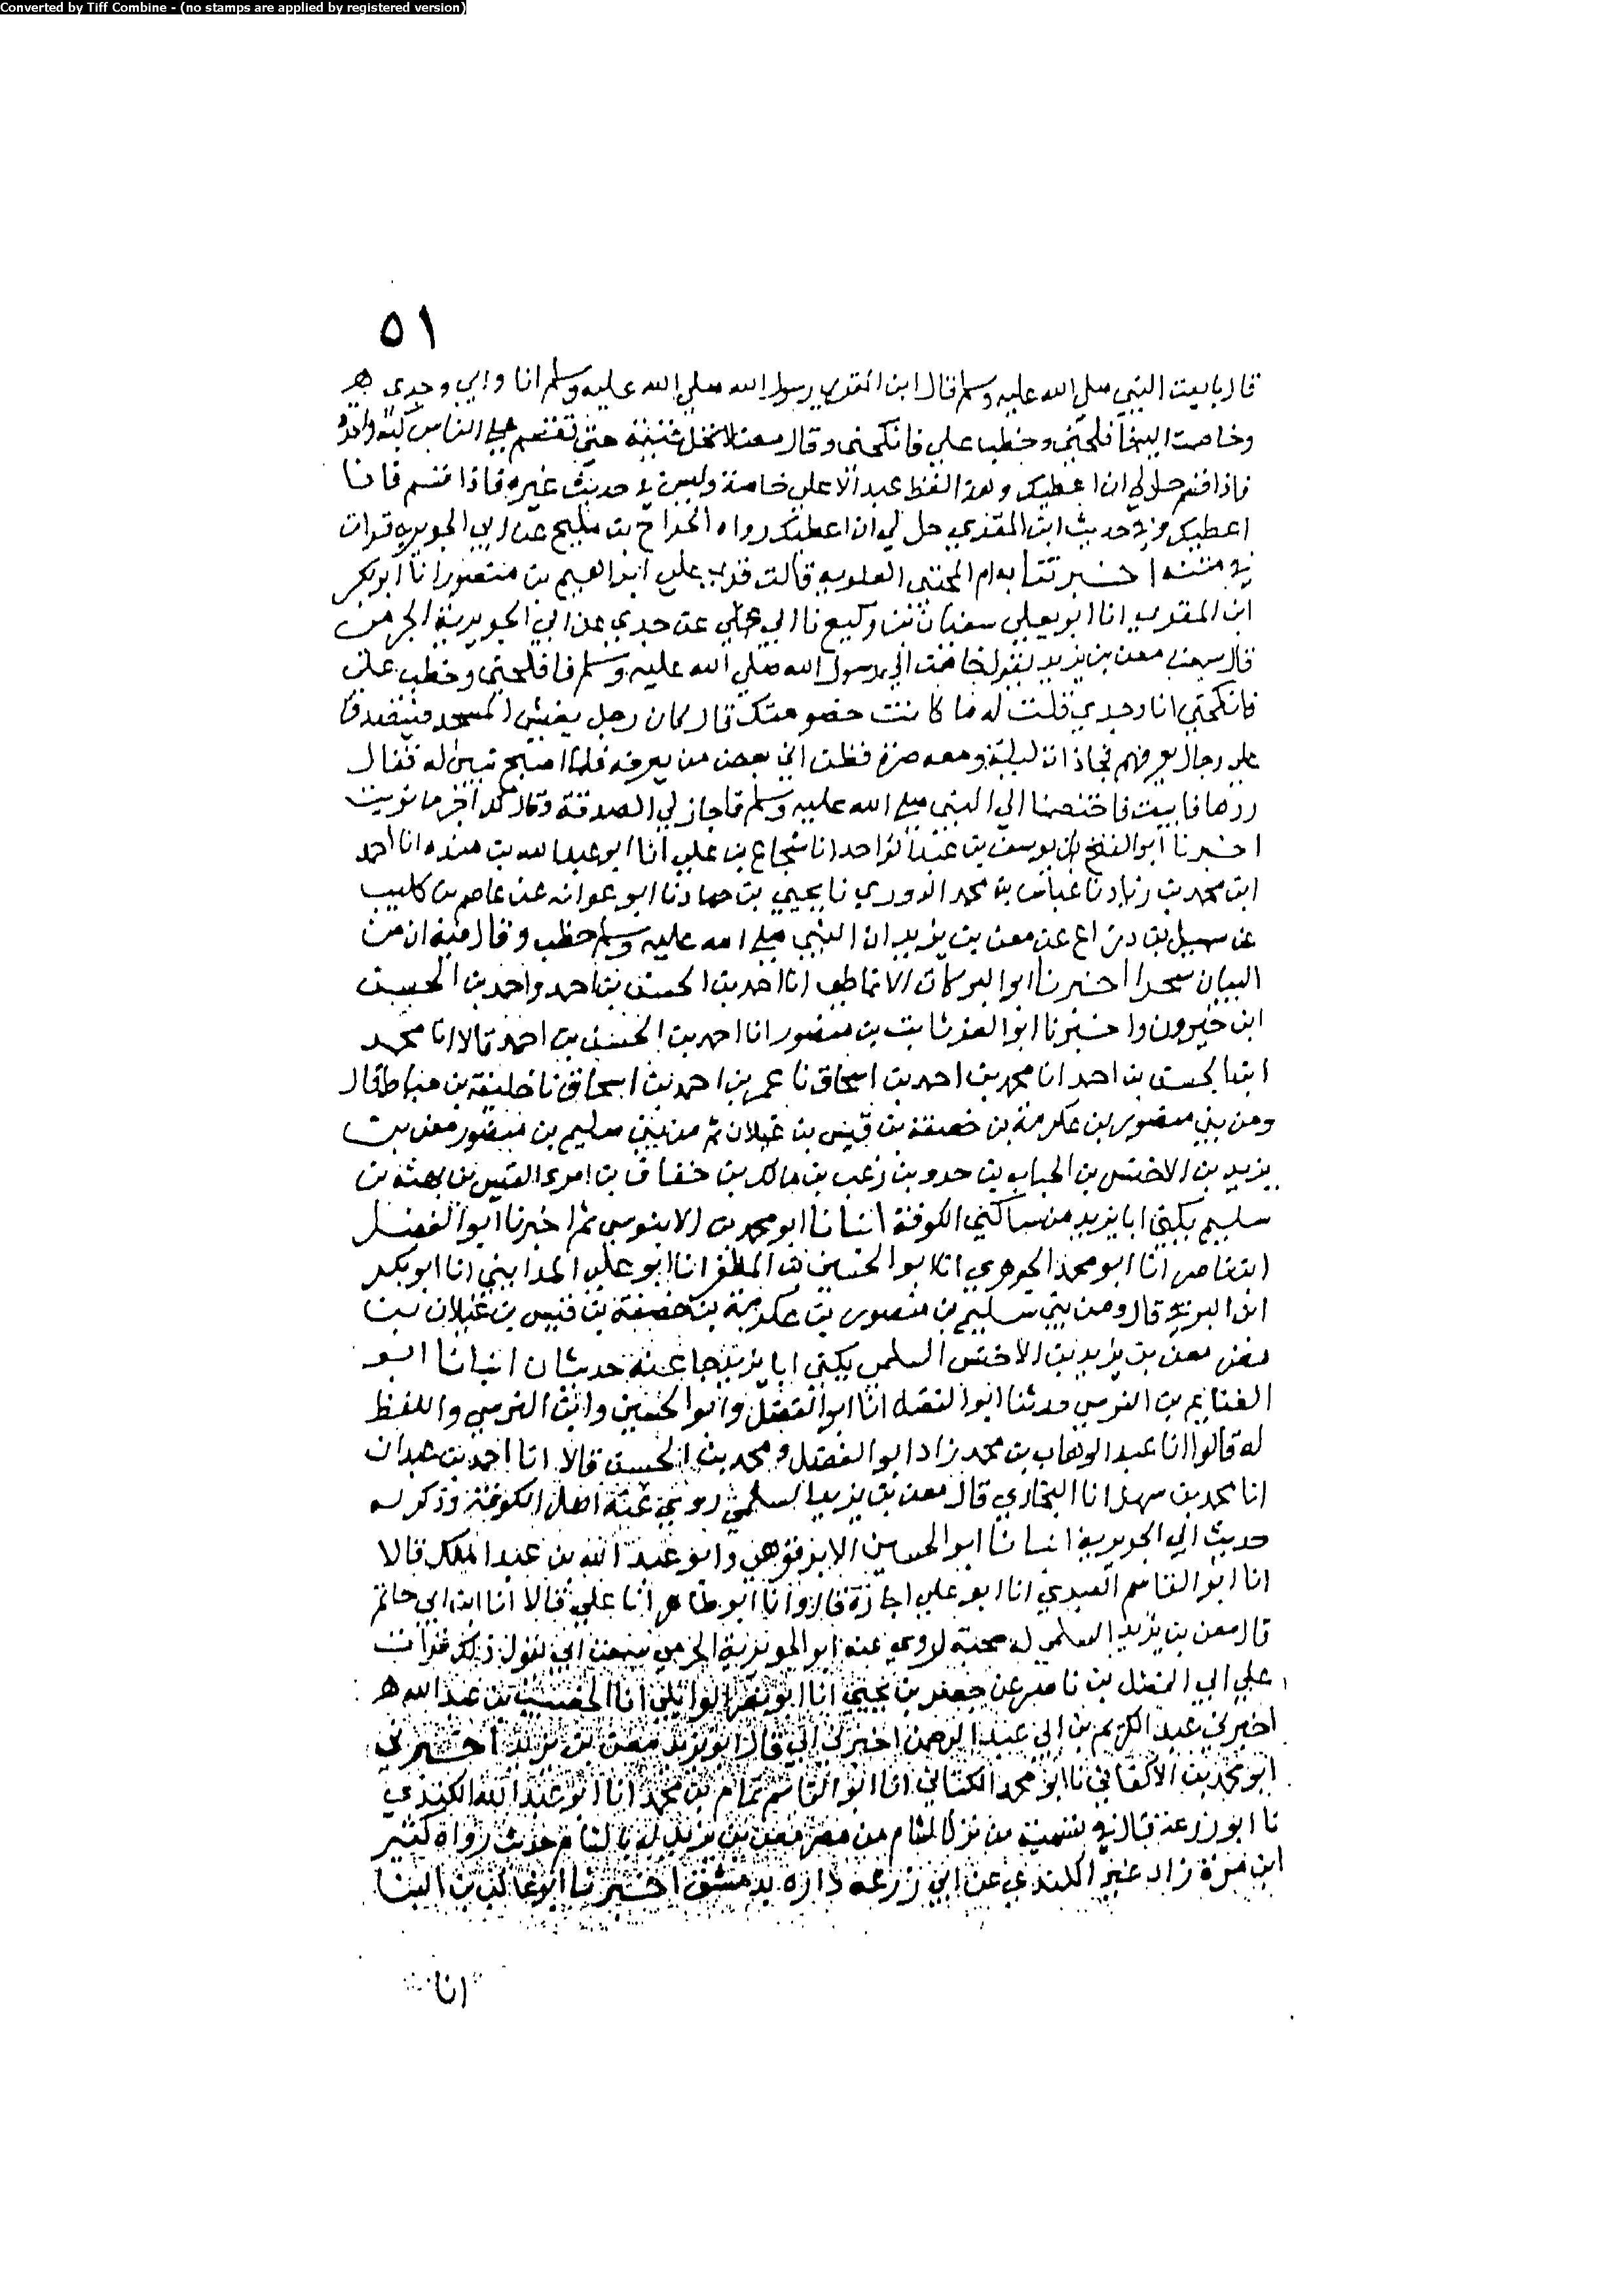 Converted by Tiff Combine - (no stamps are applied by registered version)
٥١
قال بايعت النبي صلى الله عليه وسلم قال ابن المقرى رسول الله صلي الله عليه وسلم انا وابي وجدي هـ
وخاصمت اليه فافلجني وخطب علي فانكحني وقال معن لا تحل غنيمة حتى تقسم على الناس كلها واحدة
فاذا قسم حل لي ان اعطيك وهذا لفظ عبد الاعلى خاصة وليس في حديث غيره فاذا قسم فانا
اعطيك وفي حديث ابن المقري حل لي ان اعطيك رواه الجراح بن مليح عن ابي الجويرية فزاد
في متنه اخبرتنا به ام المجتبى العلوية قالت قري علي ابراهيم بن منصور انا ابو بكر
ابن المقري انا ابو يعلى سفيان بن وكيع نا ابي عن جدي عن ابي الجويرية الجرمي
قال سمعت معن بن يزيد يقول خاصمت الي رسول الله صلي الله عليه وسلم فافلجني وخطب علي
فانكحني انا وجدي قلت له ما كانت خصومتك قال كان رجل يغشى المسجد فيتصدق
على رجال يعرفهم فجاذات ليلة ومعه صرة فظن اني بعض من يعرفه فلما اصبح تبين له فقال
ردها فابيت فاختصمنا الي النبي صلى الله عليه وسلم فاجاز لي الصدقة وقال لك اجر ما نويت
اخبرنا ابو الفتح يوسف بن عبد الواحد انا شجاع بن علي انا ابو عبد الله بن منده انا احمد
ابن محمد بن زياد نا عباس بن محمد الدوري نا يحيي بن حماد نا ابو عوانه عن عاصم بن كليب
عن سهيل بن دراع عن معن بن يزيد ان النبي صلى الله عليه وسلم خطب وقال فيه ان من
البيان سحرا اخبرنا ابو البركات الانماطي انا احمد بن الحسن بن احمد واحمد بن الحسن
ابن خيرون واخبرنا ابو العز ثابت بن منصور انا احمد بن الحسن بن احمد قالا انا محمد
ابن الحسن بن احمد انا محمد بن احمد بن اسحاق نا عمر بن احمد بن اسحاق نا خليفة بن خياط قال
ومن بني منصور بن عكرمة بن خصفة بن قيس بن عيلان ثم من بني سليم بن منصور معن بن
يزيد بن الاخنس بن الحباب بن حدو بن زعب بن مالك بن خفاف بن امرئ القيس بن بهثة بن
سليم يكنى ابا يزيد من ساكني الكوفة انبانا ابو محمد بن الابنوسي ثم اخبرنا ابو الفضل
ابن ناصر انا ابو محمد الجوهري انا ابو الحسين بن المظفر انا ابو علي المدايني انا ابو بكر
ابن البرقي قال ومن بني سليم بن منصور بن عكرمة بن خصفة بن قيس بن عيلان بن
مضر معن بن يزيد بن الاخنس السلمي يكنى ابا يزيد جا عنه حديثان انبانا ابو
الغنايم بن النرسي حدثنا ابو الفضل انا ابو الفضل وابو الحسين وابن النرسي واللفظ
له قالوا انا عبد الوهاب بن محمد زاد ابو الفضل ومحمد بن الحسن قالا انا احمد بن عبدان
انا محمد بن سهل انا البخاري قال معن بن يزيد السلمي روي عنه اهل الكوفة وذكر له
حديث ابي الجويرية انبانا ابو الحسين الابرقوهي وابو عبد الله بن عبد الملك قالا
انا ابو القاسم العبدي انا ابو علي اجازة قال وانا ابو طاهر انا علي قالا انا ابن ابي حاتم
قال معن بن يزيد السلمي له صحبة روي عنه ابو الجويرية الجرمي سمعت ابي يقول ذلك قرات
علي ابي الفضل بن ناصر عن جعفر بن يحيي انا ابو نصر الوايلي انا الخصيب بن عبد الله هـ
اخبرني عبد الكريم بن ابي عبد الرحمن اخبرني ابي قال ابو يزيد معن بن يزيد اخبرني
ابو محمد بن الاكفاني نا ابو محمد الكتاني انا ابو القاسم تمام بن محمد انا ابو عبد الله الكندي
نا ابو زرعة قال في تسمية من نزل الشام من مضر معن بن يزيد له بالشام حديث رواه كثير
ابن مرة زاد غير الكندي عن ابي زرعة داره بدمشق اخبرنا ابو غالب بن البنا
انا